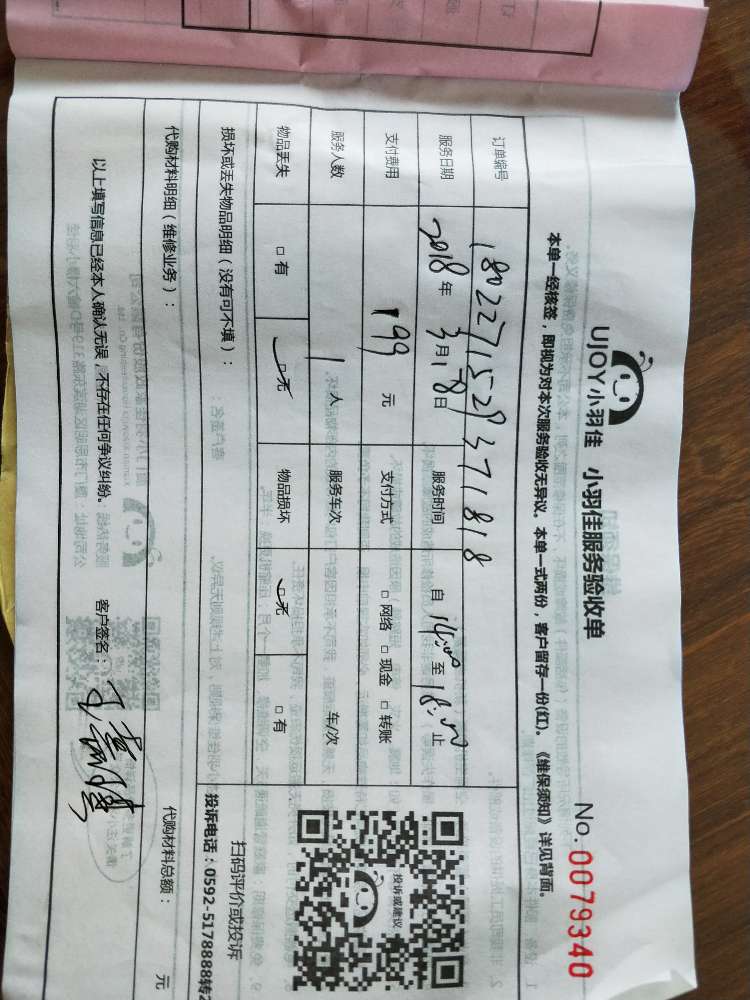 UJOY小羽佳 小羽佳服务验收单
No.0079340
本单一经核签，即视为对本次服务验收无异议。本单一式两份，客户留存一份(红)。《维保须知》详见背面。
订单编号 180227152937 1818
服务日期 2018年3月18日 服务时间 自14:00至18:00止
支付费用 199元 支付方式 □网络 □现金 □转账
服务人数 1人 服务车次 车/次
物品丢失 □有 □无 物品损坏 □无 □有
投诉或建议
扫码评价或投诉
投诉电话：0592-5178888转2
损坏或丢失物品明细（没有可不填）：
代购材料明细（维修业务）： 代购材料总额： 元
以上填写信息已经本人确认无误，不存在任何争议纠纷。 客户签名：